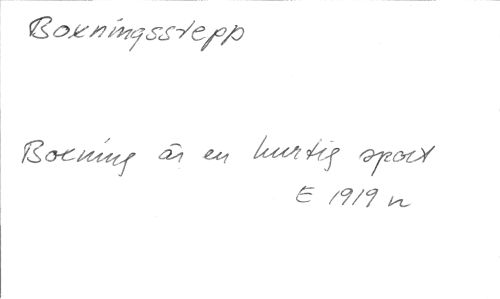 Boxningsstepp
Boxning är en hurtig sport
E 1919 n